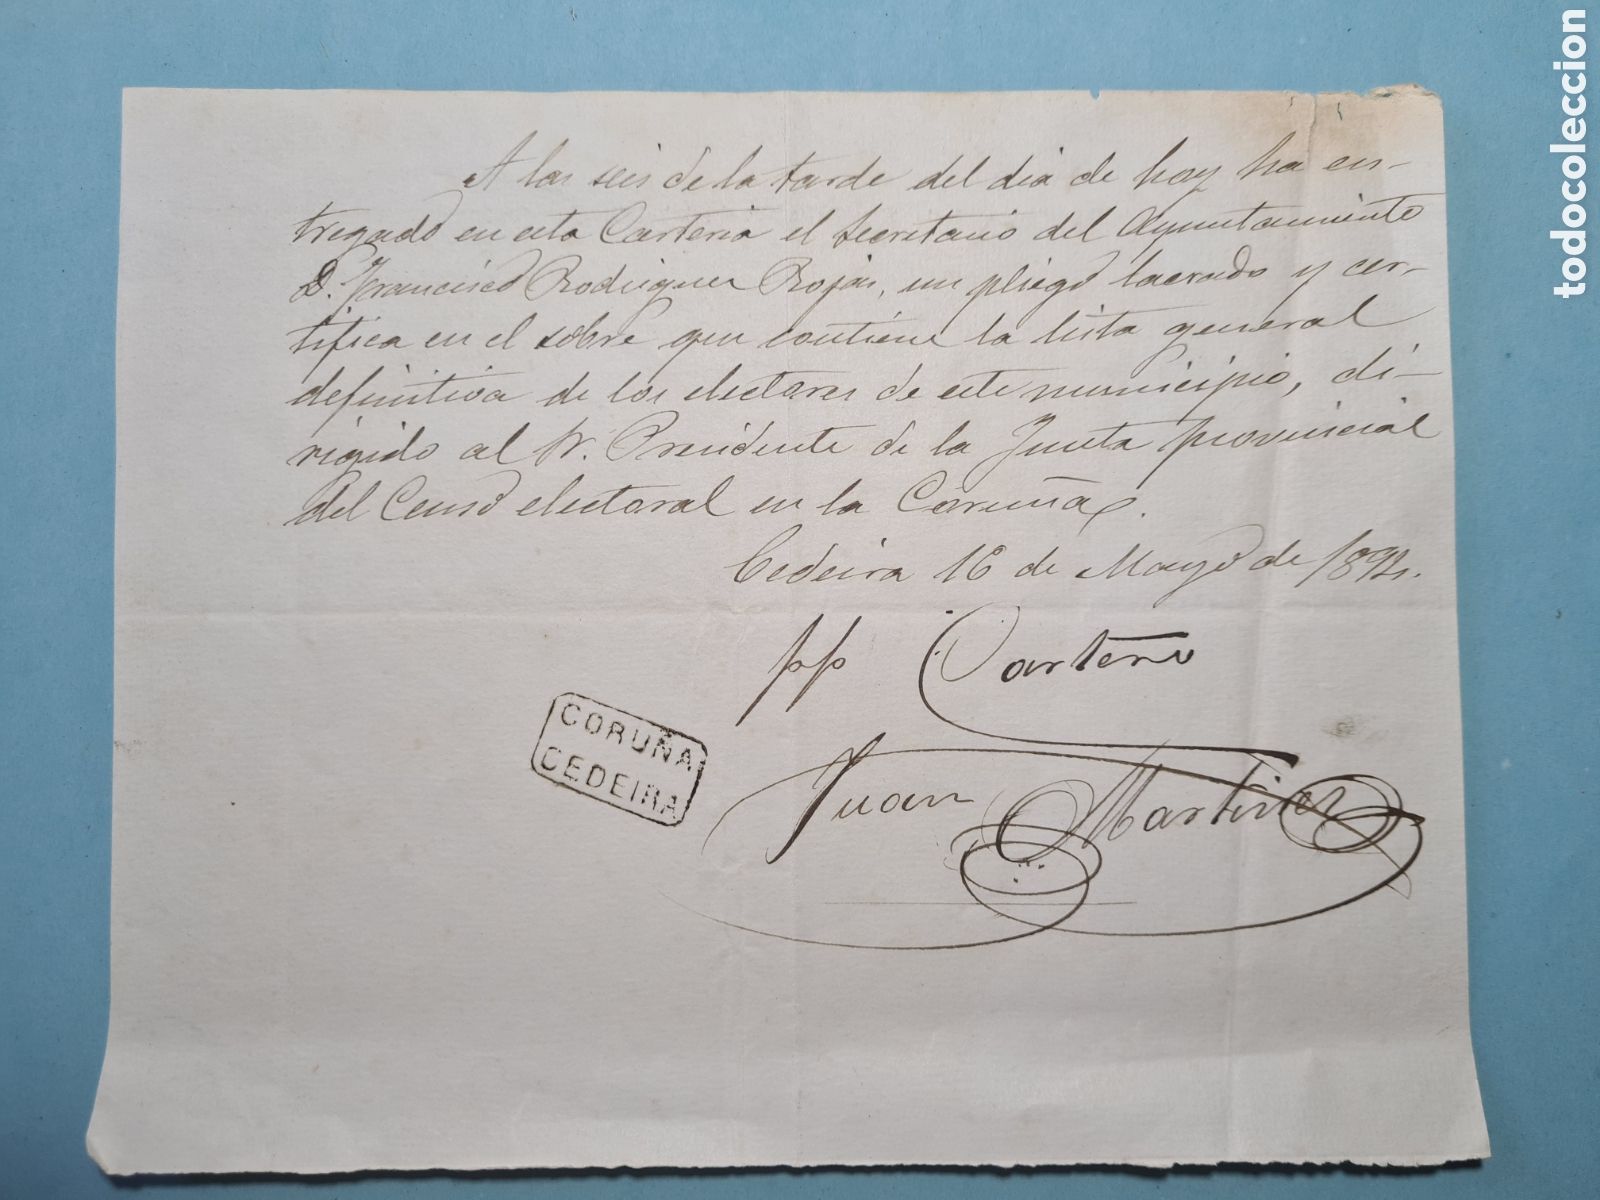 A las seis de la tarde del dia de hoy ha en-
tregado en esta Carteria el Secretario del Ayuntamiento
D. Francisco Rodriguez Rojas, un pliego lacrado y cer-
tifica en el sobre que contiene la lista general
definitiva de los electores de este municipio, di-
rigido al Sr. Presidente de la Junta provincial
del Censo electoral en la Coruña.
Cedeira 16 de Mayo de 1894.
pp Cartero
Juan Martinez
CORUÑA
CEDEIRA
todocoleccion